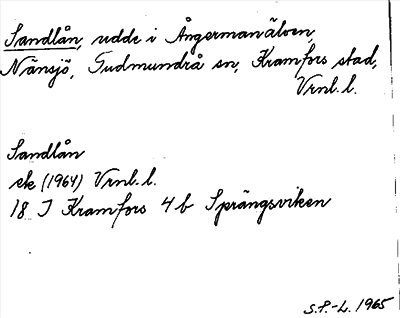 Sandlån, udde i Ångermanälven,
Nänsjö, Gudmundrå sn, Kramfors stad,
Vrnl. l.
Sandlån
ek (1964) Vrnl. l.
18 I Kramfors 4 b Sprängsviken
S.P.-L. 1965